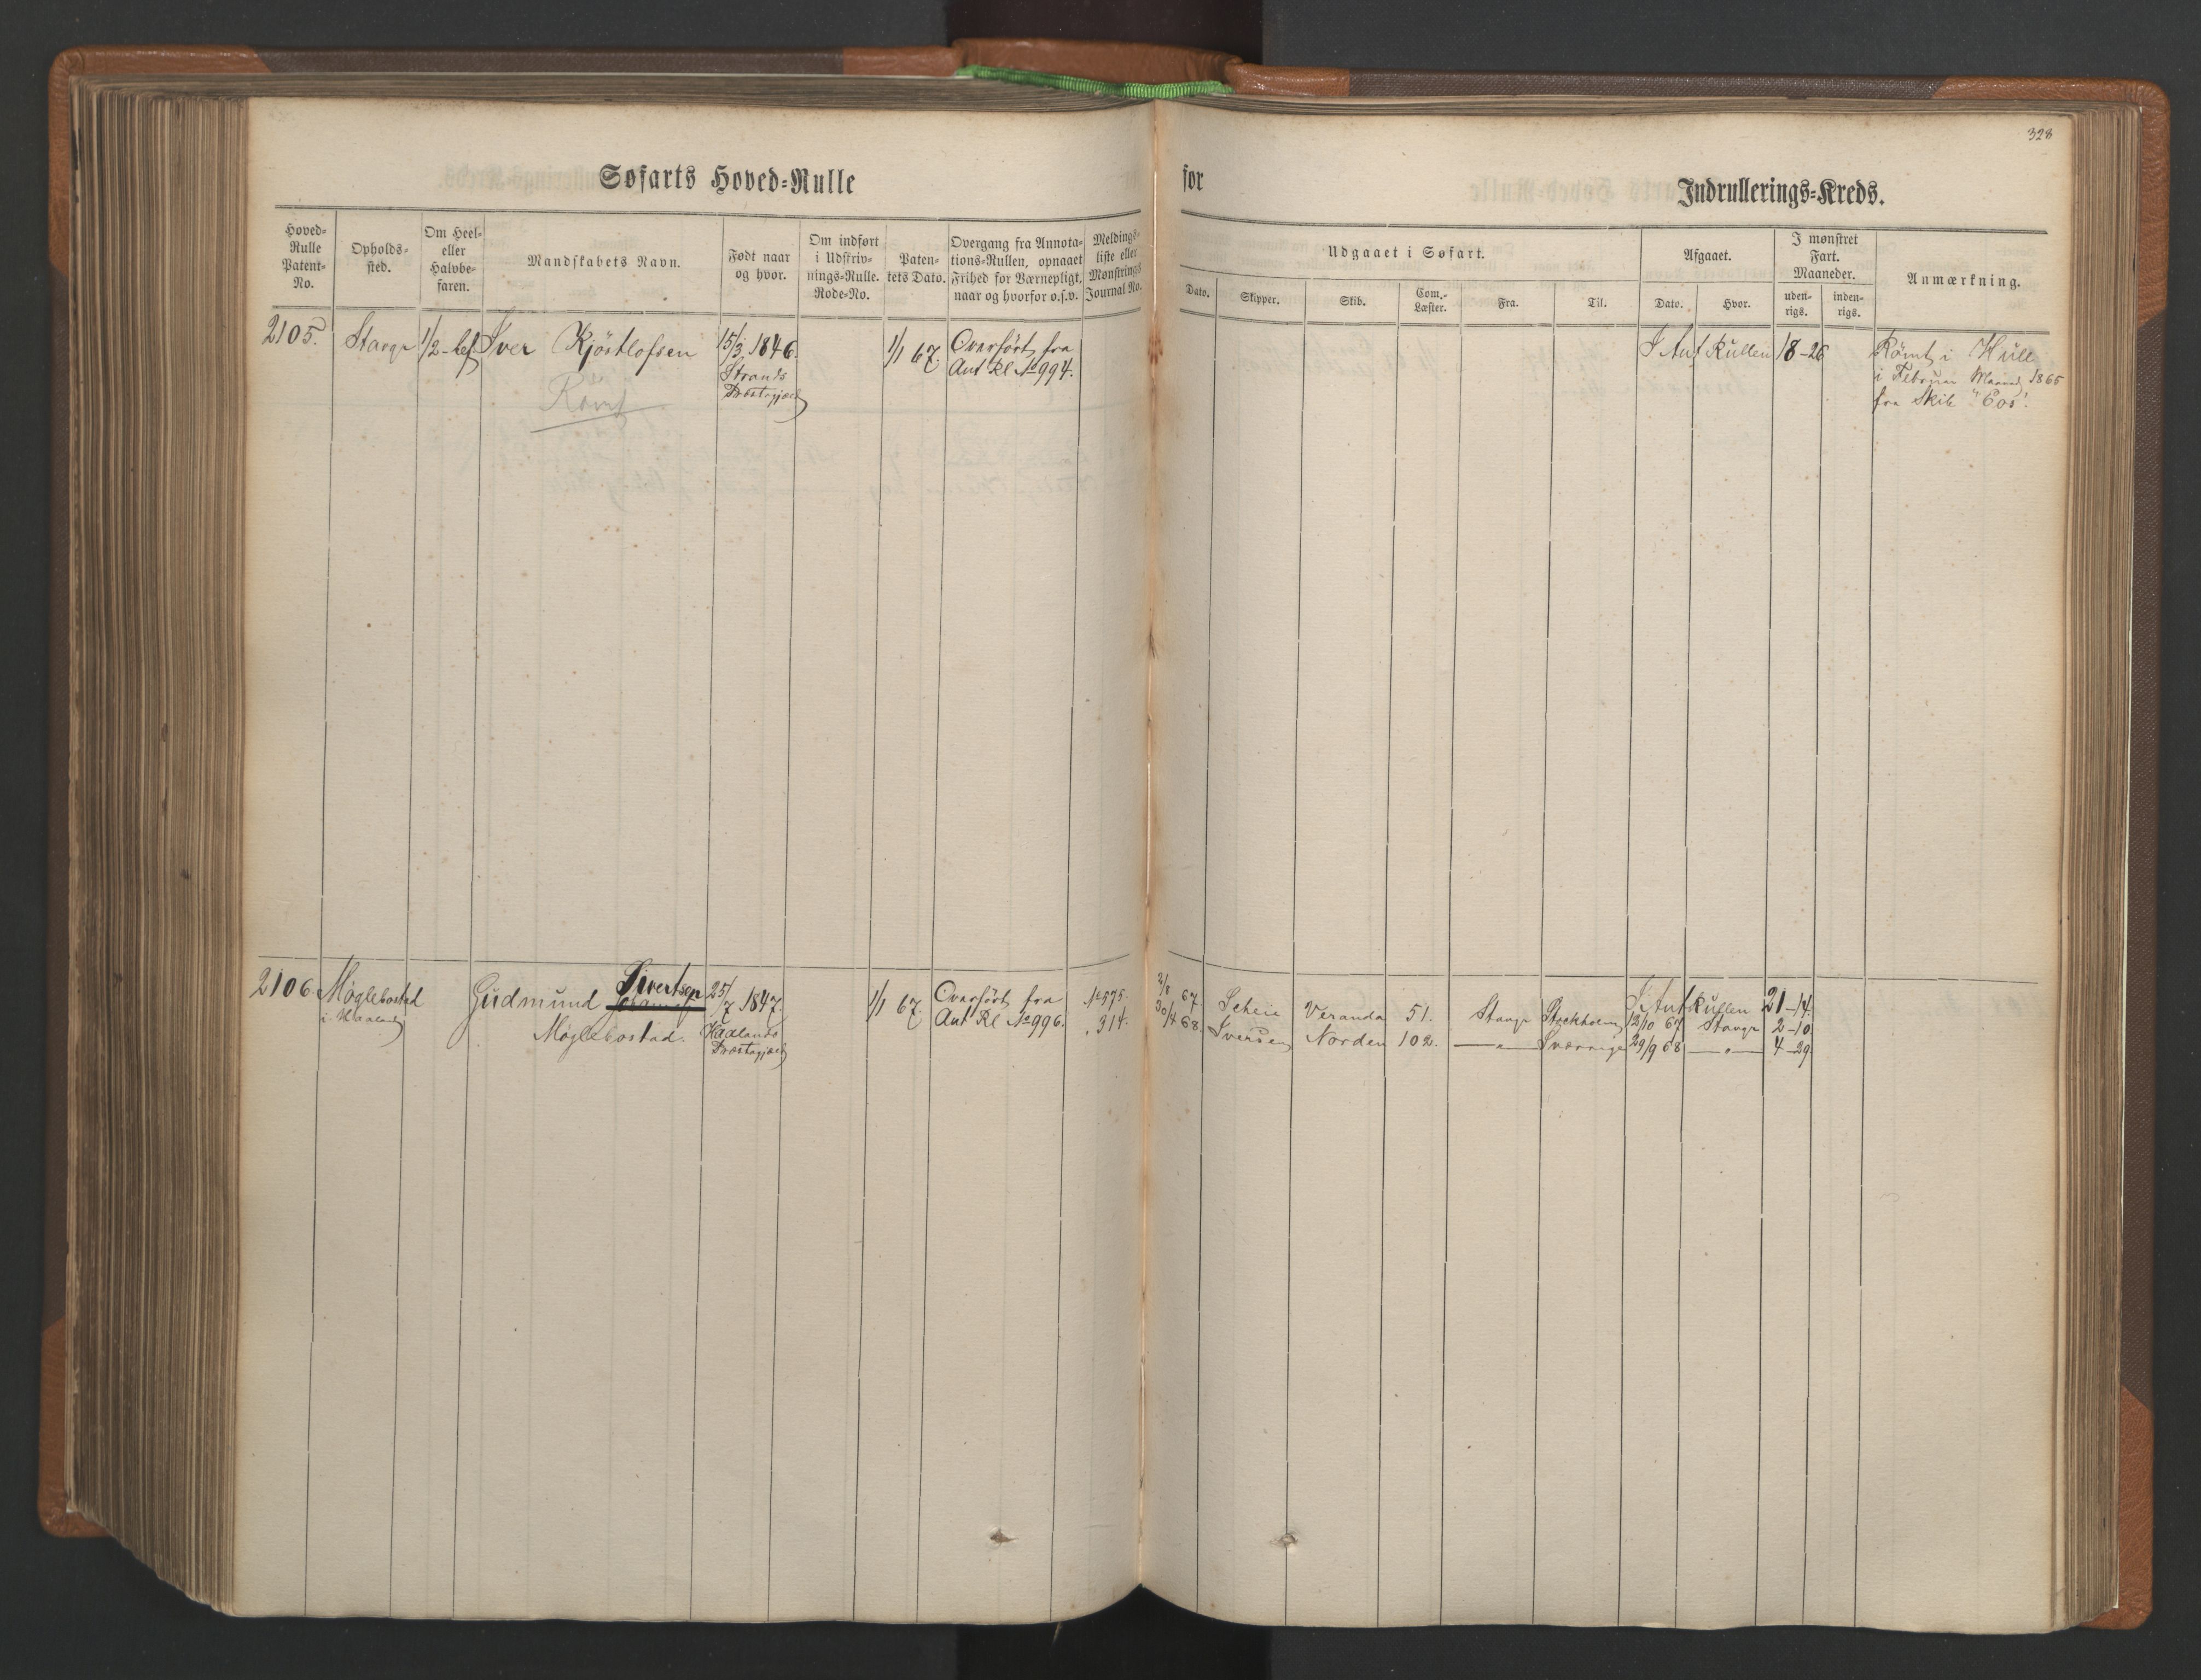 328
Søfarts Hoved-Rulle for Indrullerings-Kreds.
Hoved-Rulle Patent-No.
Opholds-sted.
Om Heel- eller Halvbe-faren.
Mandskabets Navn.
Født naar og hvor.
Om indført i Udskriv-nings-Rulle. Rode-No.
Paten-tets Dato.
Overgang fra Annota-tions-Rullen, opnaaet Frihed for Værnepligt, naar og hvorfor o.s.v.
Meldings-liste eller Mønstrings Journal No.
Udgaaet i Søfart.
Dato. Skipper. Skib. Com.-Læster. Fra. Til.
Afgaaet.
Dato. Hvor.
I mønstret Fart. Maaneder.
uden-rigs. inden-rigs.
Anmærkning.
2105. Stavgr 1/2-bef Iver Kjöstlofsen 15/3 1846. 1/1 67. Overfört fra I Ant Rullen 18-26 Römt i Hull
Strands Ant Rl No 994. i Februar Maaned 1865
Præstegjæld fra Skib "Eos".
Römt
2106. Møglebostad Gudmund Sivertsen 25/7 1847. 1/1 67. Overfört fra I Ant Rullen 21-14.
i Haaland Møglebostad. Haalands Ant Rl No 996.
Præstegjæld
No 575. 2/8 67 Scheie Veranda 51. Stavgr Stockholm 12/10 67 Stavgr 2-10
" 314. 30/4 68. Iversen Norden 102. —"— Sverrige 29/9 68 —"— 4-29